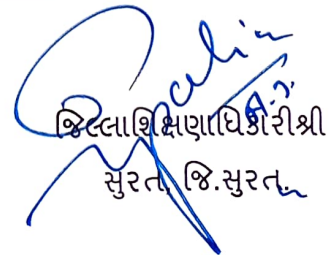 જિલ્લાશિક્ષણાધિકારીશ્રી
સુરત, જિ.સુરત.